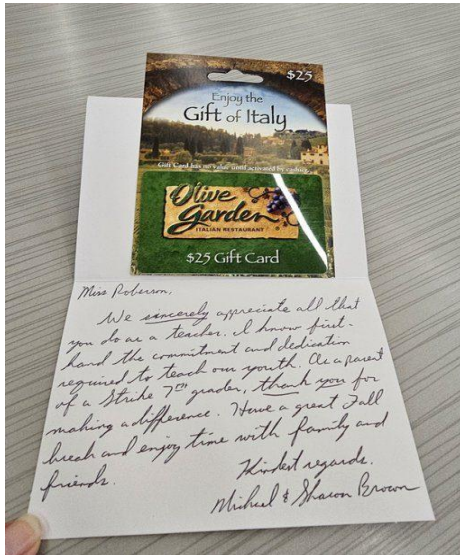 $25
Enjoy the
Gift of Italy
Gift Card has no value until activated by cashier.
Olive
Garden
ITALIAN RESTAURANT
$25 Gift Card
Miss Roberson,
We sincerely appreciate all that
you do as a teacher. I know first-
hand the commitment and dedication
required to teach our youth. As a parent
of a Strike 7th grader, thank you for
making a difference. Have a great Fall
break and enjoy time with family and
friends.
Kindest regards,
Michael & Sharon Brown